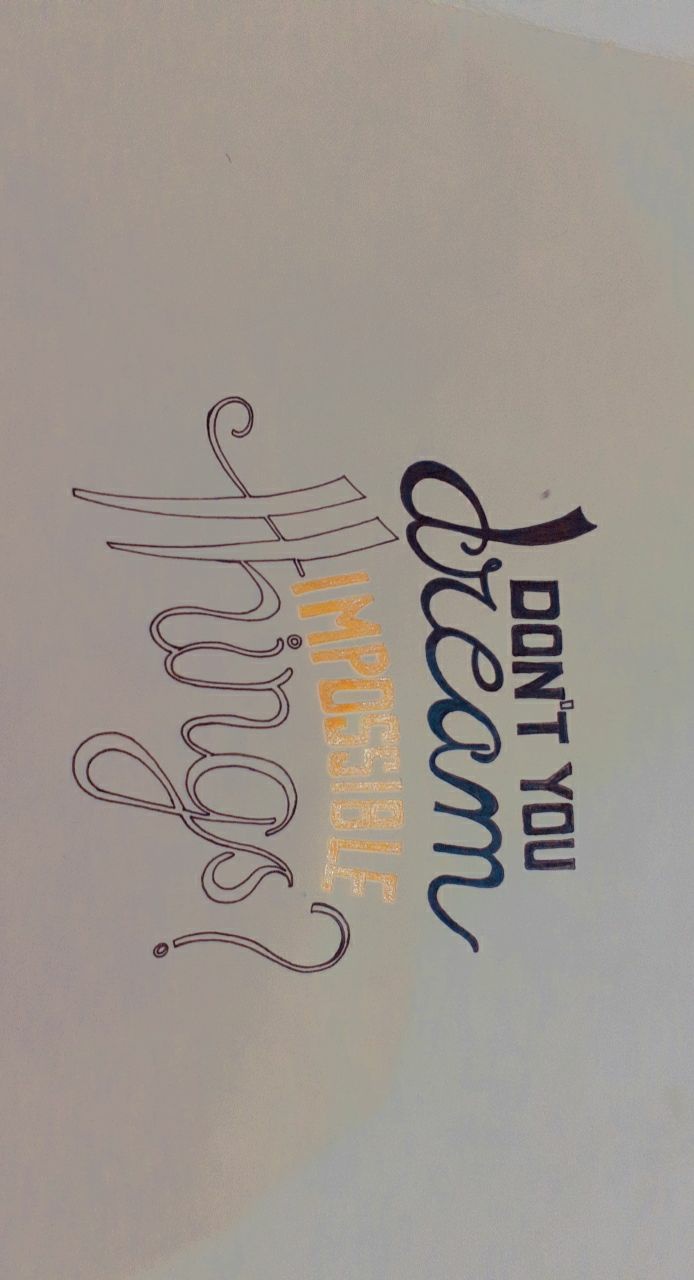 DON'T YOU
dream
IMPOSSIBLE
things?